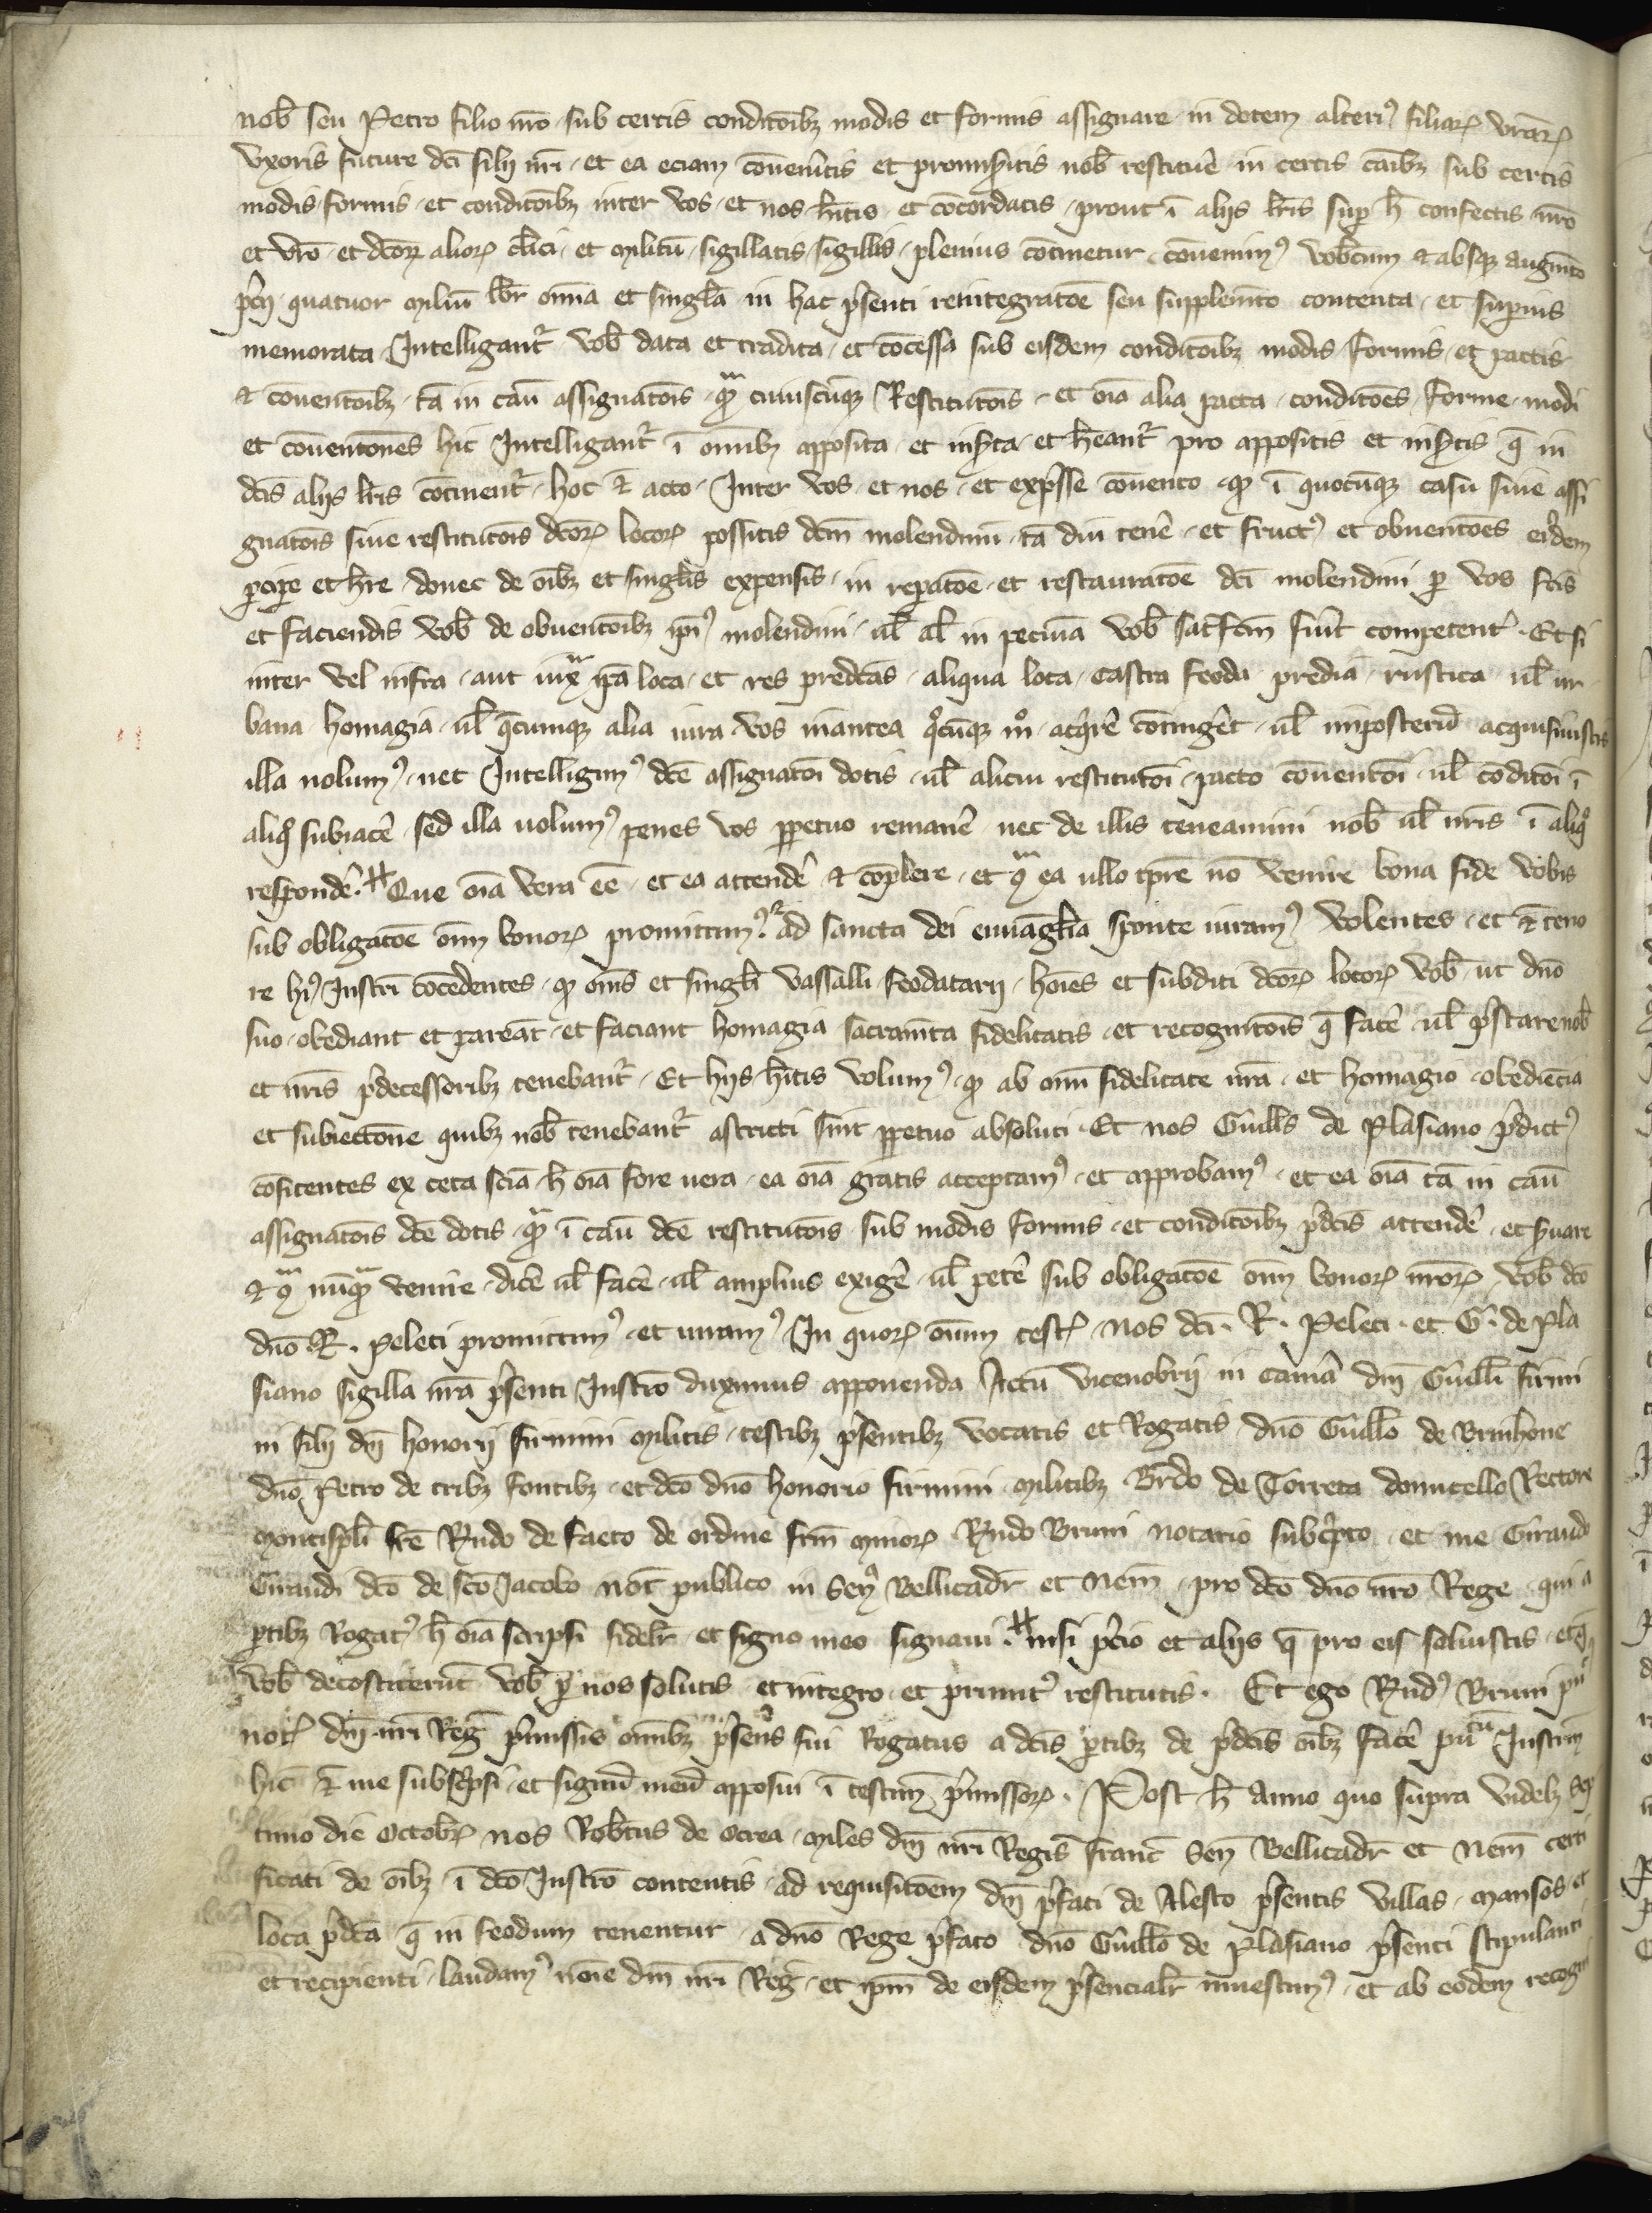 nob̄ seu Petro filio nr̄o sub certis condicōibꝫ modis et formis assignare in dotem alteriꝰ filiaꝝ vr̄arꝝ
vxoris future dc̄i filij nr̄i et ea eciam cōuenītis et promisitis nob̄ restituē in certis cāibꝫ sub certis
modis formis et condicōibꝫ inter vos et nos h̄itis et cōcordatis prout ī alijs lr̄is suꝑ h̄ confectis nr̄o
et vr̄o et dc̄oꝝ alioꝝ cl̄ici et militū sigillatis sigillis plenius cōtinetur cōuenimꝰ vob̄cum ⁊ absqꝫ augm̄to
p̄cij quatuor miliū lbr̄ om̄ia et singl̄a in hac p̄senti reintegratōe seu supplem̄to contenta et suꝑius
memorata Intelligant᷑ vob̄ data et tradita et cōcessa sub eisdem condicōibꝫ modis formis et pactis
⁊ cōuentōibꝫ tā in cāu assignatōis qᵃꝫ cuiuscūqꝫ Restitutōis et oīa alia pacta condicōes forme modi
et cōuentōnes hic Intelligant᷑ ī om̄ibꝫ apposita et insꝑta et h̄eant᷑ pro appositis et insꝑtis q̄ in
dc̄is alijs lr̄is cōtinent᷑ hoc ⁊̄ acto Inter vos et nos et exp̄sse cōuento qꝫ ī quocūqꝫ casu siue assi
gnatōis siue restitutōis dc̄oꝝ locoꝝ possitis dc̄m molendinū tā diu tenē et fructꝰ et obuentōes eiꝰdem
ꝑciꝑe et h̄re donec de oībꝫ et singl̄is expensis in reꝑatōe et restauratōe dc̄i molendini ꝑ vos fc̄is
et faciendis vob̄ de obuentōibꝫ ip̄iꝰ molendini ul̄ al̄ in pecūia vob̄ satisfc̄m fuīt competent᷑ Et si
inter vel infra aut iuxᵃ ip̄a loca et res predc̄as aliqua loca castra feoda predia rustica ul̄ ur
bana homagia ul̄ q̄cumqꝫ alia iura vos inantea qͦcūqꝫ mͦ acqⁱrē cōtingēt ul̄ imposterū acquisiuistis
illa nolumꝰ nec Intelligimꝰ dc̄e assignatōi dotis ul̄ alicui restitutōi pacto cōuentōi ul̄ cōdicōi ī
aliqͦ subiacē sed illa uolumꝰ penes vos ꝑpetuo remanē nec de illis teneamini nob̄ ul̄ nr̄is ī aliqͦ
respondē. Que oīa vera eē et ea attendē ⁊ cōplere et qᵃ ea ullo tp̄re nō venire bona fide vobis
sub obligatōe om̄i bonoꝝ promittimꝰ. ad sancta dei euuāgl̄ia sponte iuramꝰ volentes et ⁊̄ teno
re hꝰ Instr̄i cōcedentes qꝫ om̄s et singl̄i vassalli feodatarij hoīes et subditi dc̄oꝝ locoꝝ vob̄ ut dn̄o
suo obediant et pareāt et faciant homagia sacram̄ta fidelitatis et recognitōis q̄ facē ul̄ p̄stare nob̄
et nr̄is p̄decessoribꝫ tenebant᷑ Et hijs h̄itis volumꝰ qꝫ ab om̄i fidelitate nr̄a et homagio obediēcia
et subiectōne quibꝫ nob̄ tenebant᷑ astricti sint ꝑpetuo absoluti Et nos Guill̄s de Plasiano p̄dictꝰ
cōfitentes ex c̄ta sciā h̄ oīa fore uera ea oīa gratis acceptamꝰ et approbamꝰ et ea oīa tā in cāu
assignatōis dc̄e dotis qᵃꝫ ī cāu dc̄e restitutōis sub modis formis et condicōibꝫ p̄dc̄is attendē et s̄uare
⁊ qᵃ nūqᵃꝫ venire dicē ul̄ facē ul̄ amplius exigē ul̄ petē sub obligatōe om̄i bonoꝝ nr̄oꝝ vob̄ dc̄o
dn̄o R. Peleti promittimꝰ et iuramꝰ In quoꝝ om̄ium test̄ nos dc̄i R. Peleti et G. de Pla
siano sigilla nr̄a p̄senti Instr̄o duximus apponenda Actū vicenobrij in cam̄a dn̄i Guill̄i firmi
ni filij dn̄i honorij firmini militis testibꝫ p̄sentibꝫ vocatis et Rogatis dn̄o Guill̄o de Brinhone
dn̄o Petro de tribꝫ fontibꝫ et dc̄o dn̄o honorio firmini militibꝫ Br̄do de Torreta domicello Rectore
montispl̄i fr̄e Rn̄do de faeto de ordine fr̄m minoꝝ Rn̄do Bruni notario subscͥpto et me Giraudo
Giraudi dc̄o de sc̄o Jacobo not̄ publico in Senꝰ Bellicadr̄ et Nem̄ pro dc̄o dn̄o nr̄o Rege qui a
ꝑtibꝫ Rogatꝰ h̄ oīa scripsi fidel̄r et signo meo signaui. nisi p̄cio et alijs q̄ pro eis soluistis et q̄
vob̄ decostiterūt vob̄ ꝑ nos solutis et integro et primitꝰ restitutis. Et ego Rn̄dꝰ Bruni pu
not̄ dn̄i nr̄i Reḡ p̄missis om̄ibꝫ p̄sens fui Rogatus a dc̄is ꝑtibꝫ de p̄dc̄is oībꝫ facē pu͞ Instrm̄
hic ⁊̄ me subscͥpsi et signū meū apposui ī testim̄ p̄missoꝝ. Post h̄ Anno quo supra videlꝫ sep
timo die Octobꝝ nos Rob̄tus de Ocrea miles dn̄i nr̄i Regis franc̄ Sen̄ Bellicadr̄ et Nem̄ certi
ficati de oībꝫ ī dc̄o Instr̄o contentis ad requisitōem dn̄i p̄fati de Alesto p̄sentis villas mansos et
loca p̄dc̄a q̄ in feodum tenentur a dn̄o Rege p̄fato dn̄o Guill̄o de Plasiano p̄senti stipulanti
et recipienti laudamꝰ noīe dn̄i nr̄i Reḡ et ip̄m de eisdem p̄sencialr̄ inuestimꝰ et ab eodem recogn